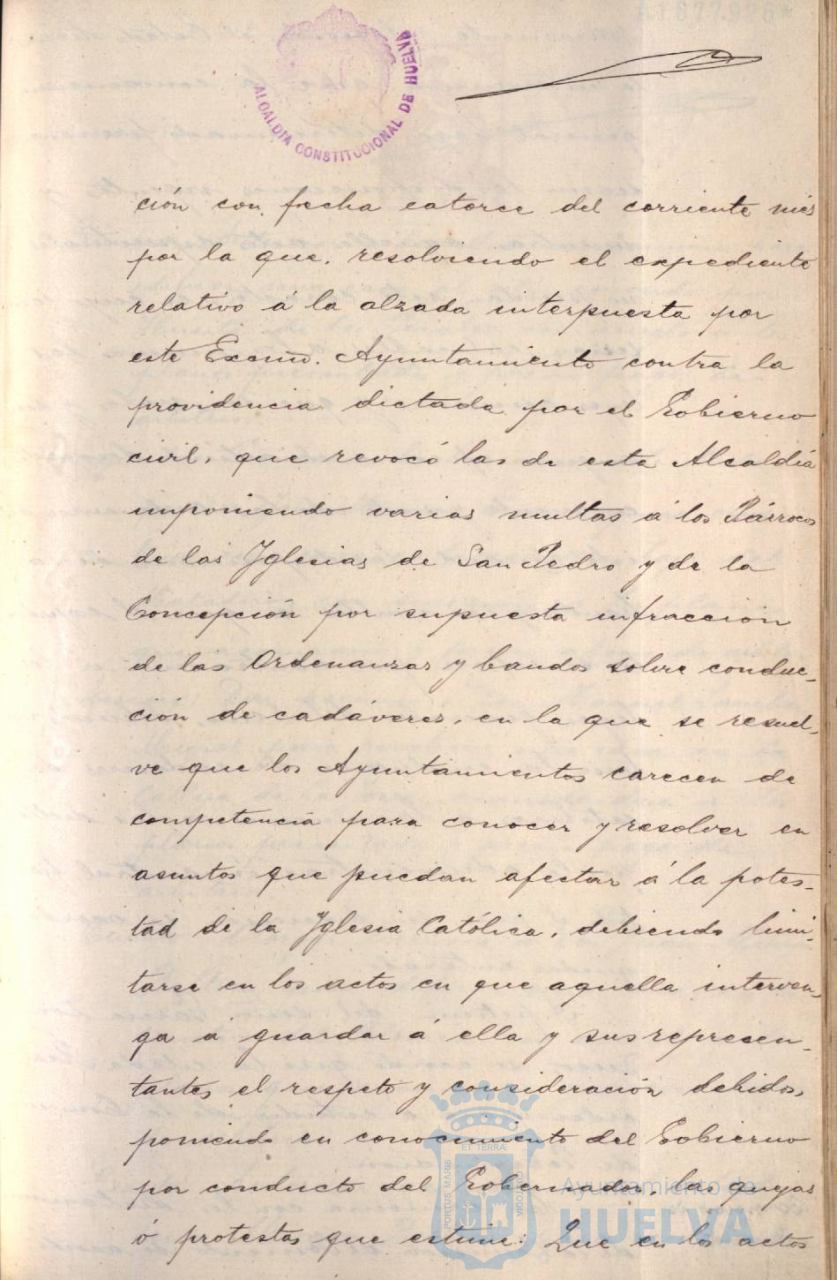 A1877926*
ALCALDÍA CONSTITUCIONAL DE HUELVA
ción con fecha catorce del corriente mes
por la que, resolviendo el expediente
relativo á la alzada interpuesta por
este Excmo. Ayuntamiento contra la
providencia dictada por el Gobierno
civil, que revocó las de esta Alcaldía
imponiendo varias multas á los Párrocos
de las Yglesias de San Pedro y de la
Concepción por supuesta infracción
de las Ordenanzas y bandos sobre conduc-
ción de cadáveres, en la que se resuel-
ve que los Ayuntamientos carecen de
competencia para conocer y resolver en
asuntos que puedan afectar á la potes-
tad de la Yglesia Católica, debiendo limi-
tarse en los actos en que aquella interven-
ga á guardar á ella y sus represen-
tantes el respeto y consideración debidos,
poniendo en conocimiento del Gobierno
por conducto del Gobernador, las quejas
ó protestas que estime: Que en los actos
PORTUS MARIS ET TERRAE CUSTODIA
Ayuntamiento de
HUELVA